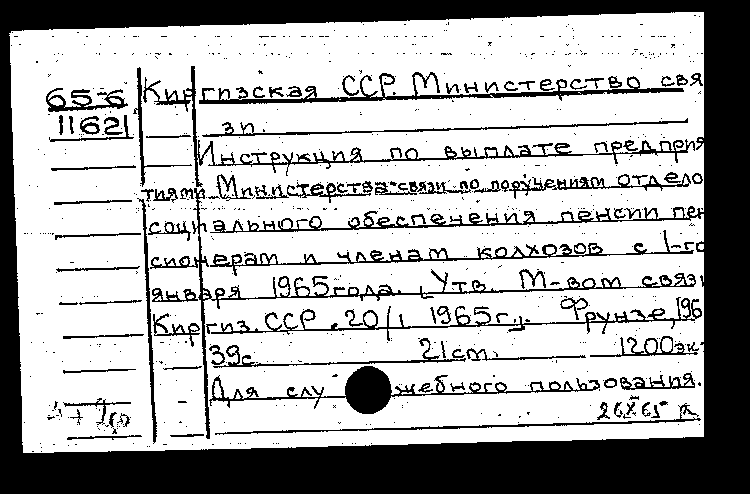 65-6 Киргизская ССР. Министерство свя
11621 зи.
Инструкция по выплате предприя
тиями Министерства связи по поручениям отдело
социального обеспечения пенсии пен
сионерам и членам колхозов с 1-го
января 1965 года. [Утв. М-вом связи
Киргиз. ССР 20/I 1965 г.]. Фрунзе, 196
39с 21см. 1200экз
Для служебного пользования.
26X65